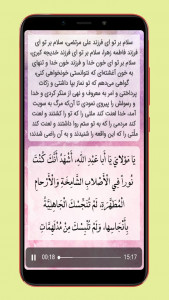 سلام بر تو ای فرزند علی مرتضی، سلام بر تو ای
فرزند فاطمه زهرا، سلام بر تو ای فرزند خدیجه کبری،
سلام بر تو ای خون خدا و فرزند خون خدا و تنهای
به خون آغشته‌ای که نتوانستی خونخواهی کنی،
گواهی می‌دهم که تو نماز بپا داشتی و زکات
پرداختی و امر به معروف و نهی از منکر کردی و خدا
و رسولش را پیروی نمودی تا آن‌که مرگ به سویت
آمد، خدا لعنت کند ملتی را که تو را کشتند و لعنت کند
ملتی را که به تو ستم کردند و خدا لعنت کند
ملتی را که این واقعه را شنیدند و به آن راضی شدند؛
يَا مَوْلَايَ يَا أَبا عَبْدِ اللّٰهِ، أَشْهَدُ أَنَّكَ كُنْتَ
نُوراً فِي الْأَصْلَابِ الشَّامِخَةِ وَالْأَرْحَامِ
الْمُطَهَّرَةِ، لَمْ تُنَجِّسْكَ الْجَاهِلِيَّةُ
بِأَنْجاسِها، وَلَمْ تُلْبِسْكَ مِنْ مُدْلَهِمَّاتِ
00:18 15:17